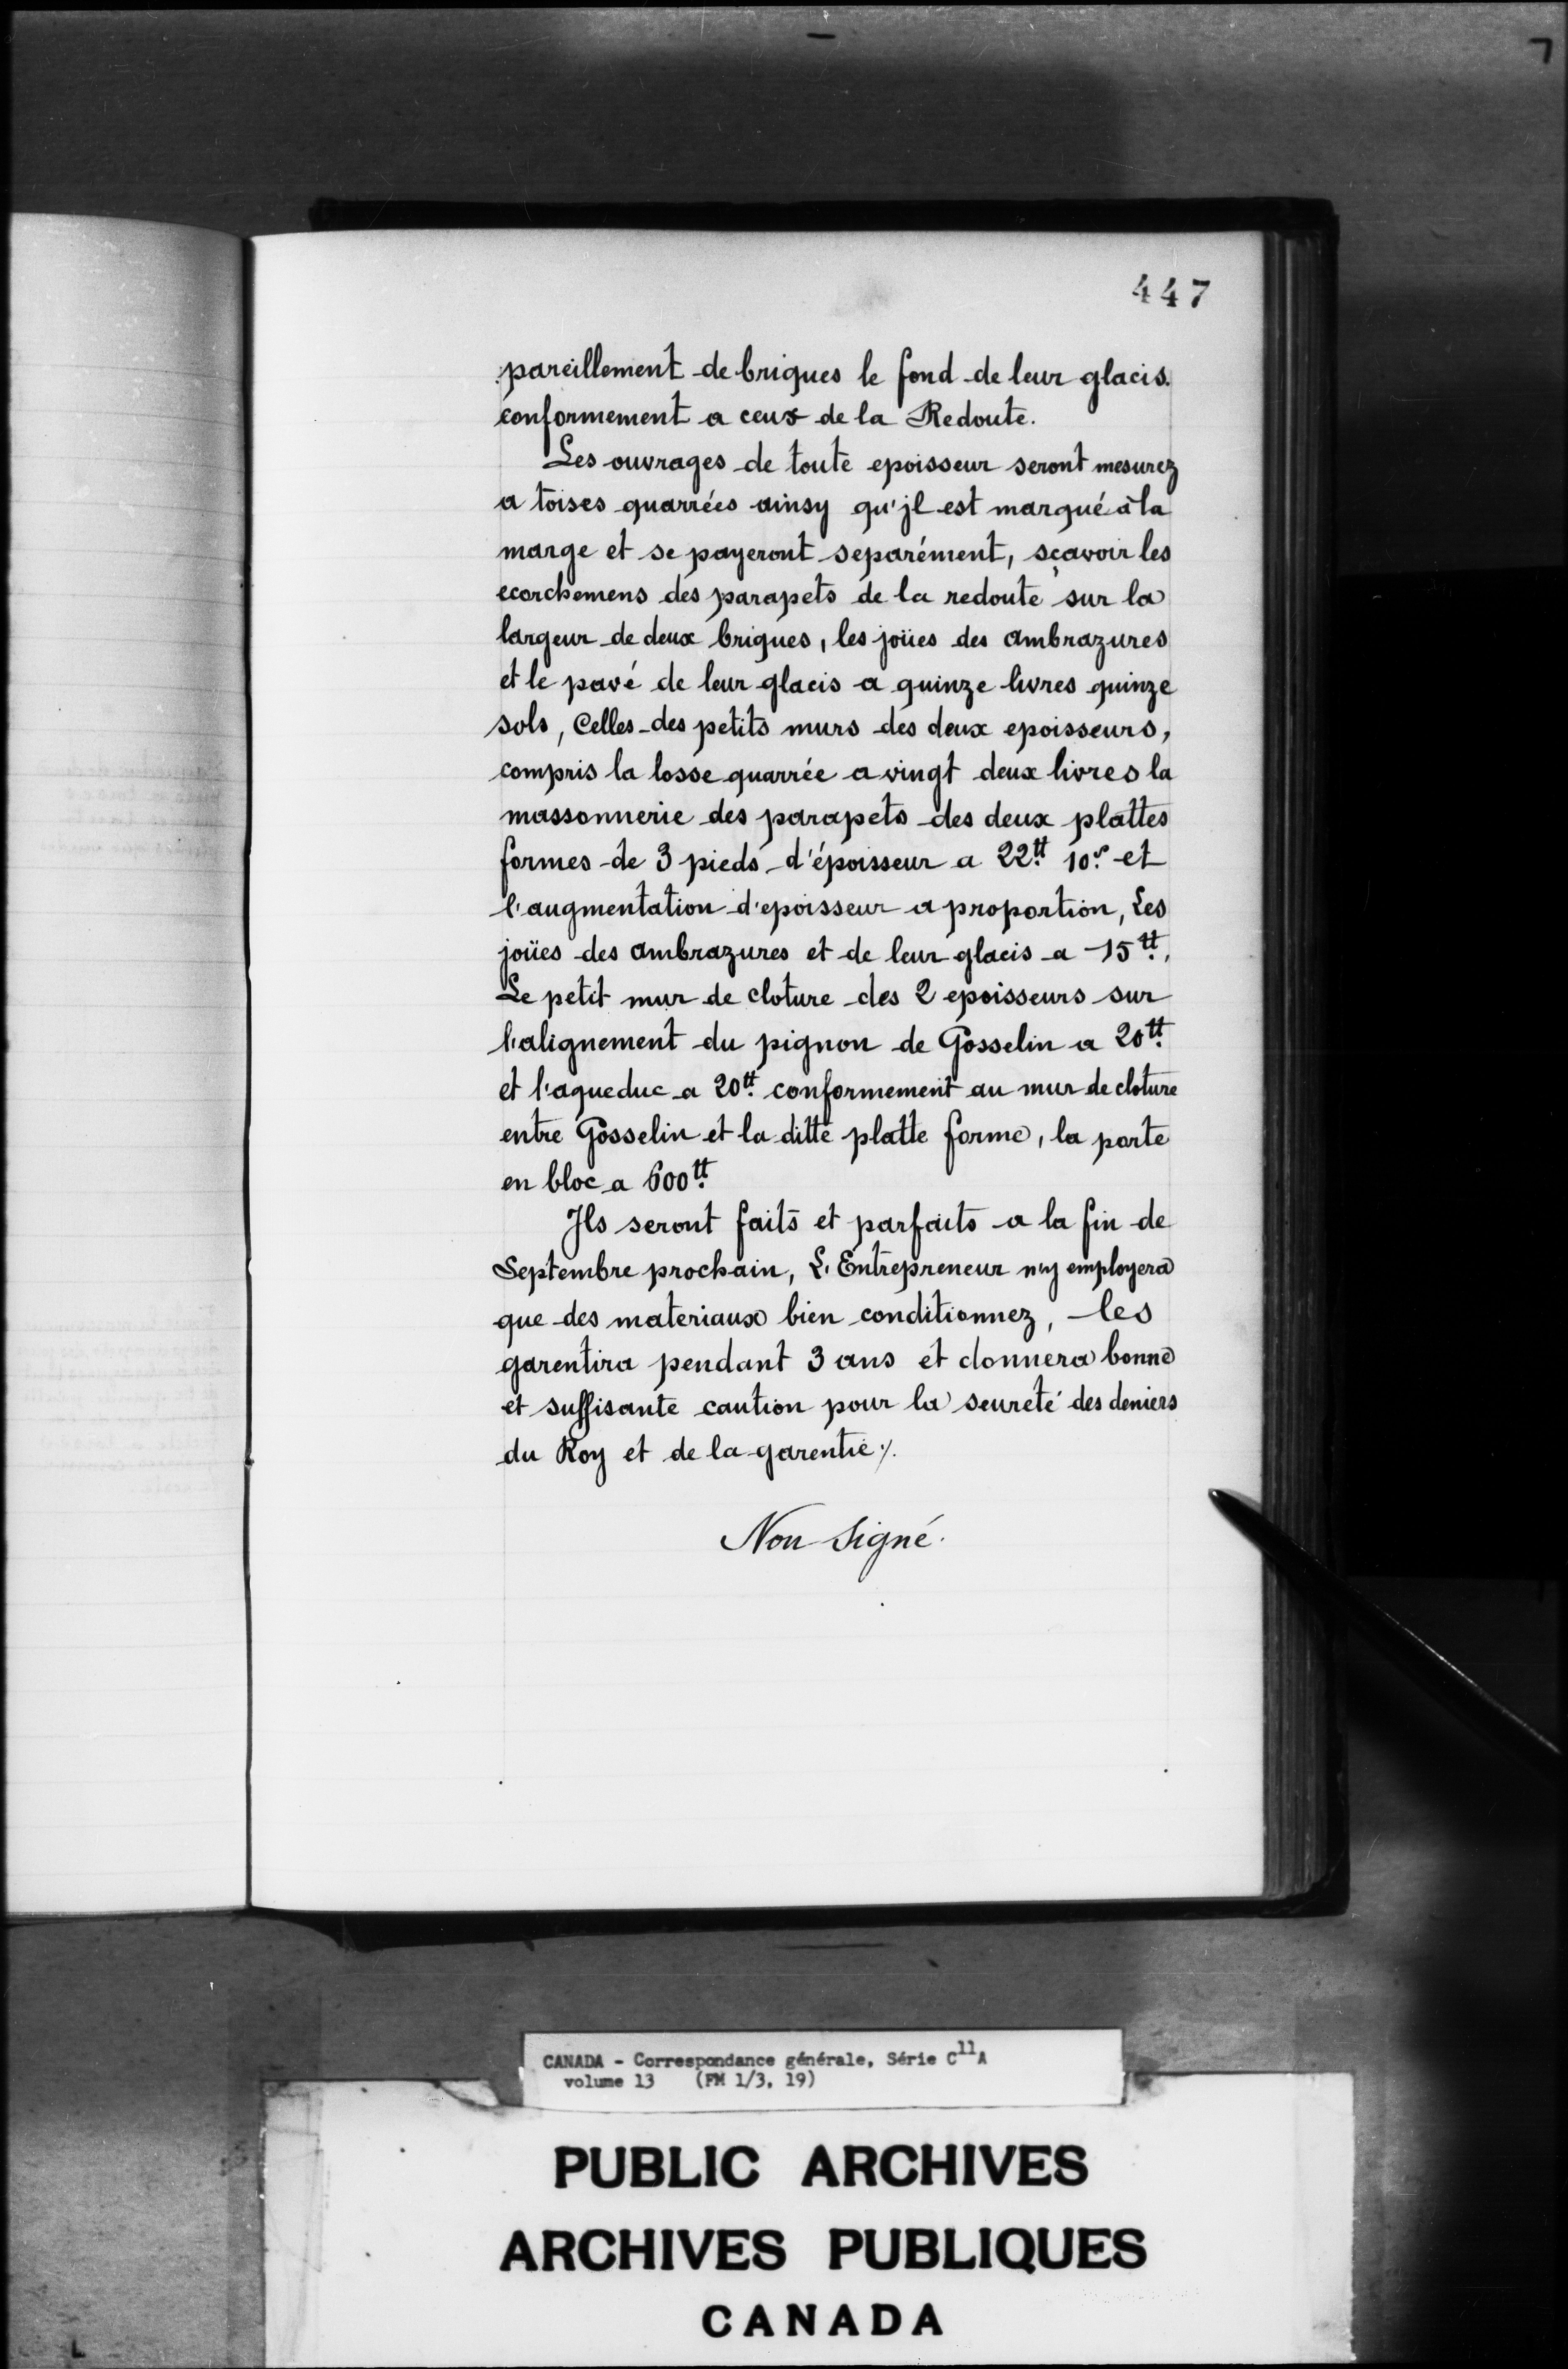 447
pareillement de briques le fond de leur glacis.
conformement a ceux de la Redoute.
Les ouvrages de toute epoisseur seront mesurez
a toises quarrées ainsy qu'jl est marqué à la
marge et se payeront separément, sçavoir les
ecorchemens des parapets de la redoute sur la
largeur de deux briques, les joües des ambrazures
et le pavé de leur glacis a quinze livres quinze
sols, Celles des petits murs des deux epoisseurs,
compris la losse quarrée a vingt deux livres la
massonnerie des parapets des deux plattes
formes de 3 pieds d'époisseur a 22tt 10s et
l'augmentation d'epoisseur a proportion, Les
joües des ambrazures et de leur glacis a 15tt,
Le petit mur de cloture des 2 epoisseurs sur
l'alignement du pignon de Gosselin a 20tt
et l'aqueduc a 20tt conformement au mur de cloture
entre Gosselin et la ditte platte forme, la porte
en bloc a 600tt
Jls seront faits et parfaits a la fin de
Septembre prochain, L'Entrepreneur n'y employera
que des materiaux bien conditionnez, les
garentira pendant 3 ans et donnera bonne
et suffisante caution pour la seureté des deniers
du Roy et de la garentie ./.
Non Signé.
CANADA - Correspondance générale, Série C11A
volume 13 (FM 1/3, 19)
PUBLIC ARCHIVES
ARCHIVES PUBLIQUES
CANADA